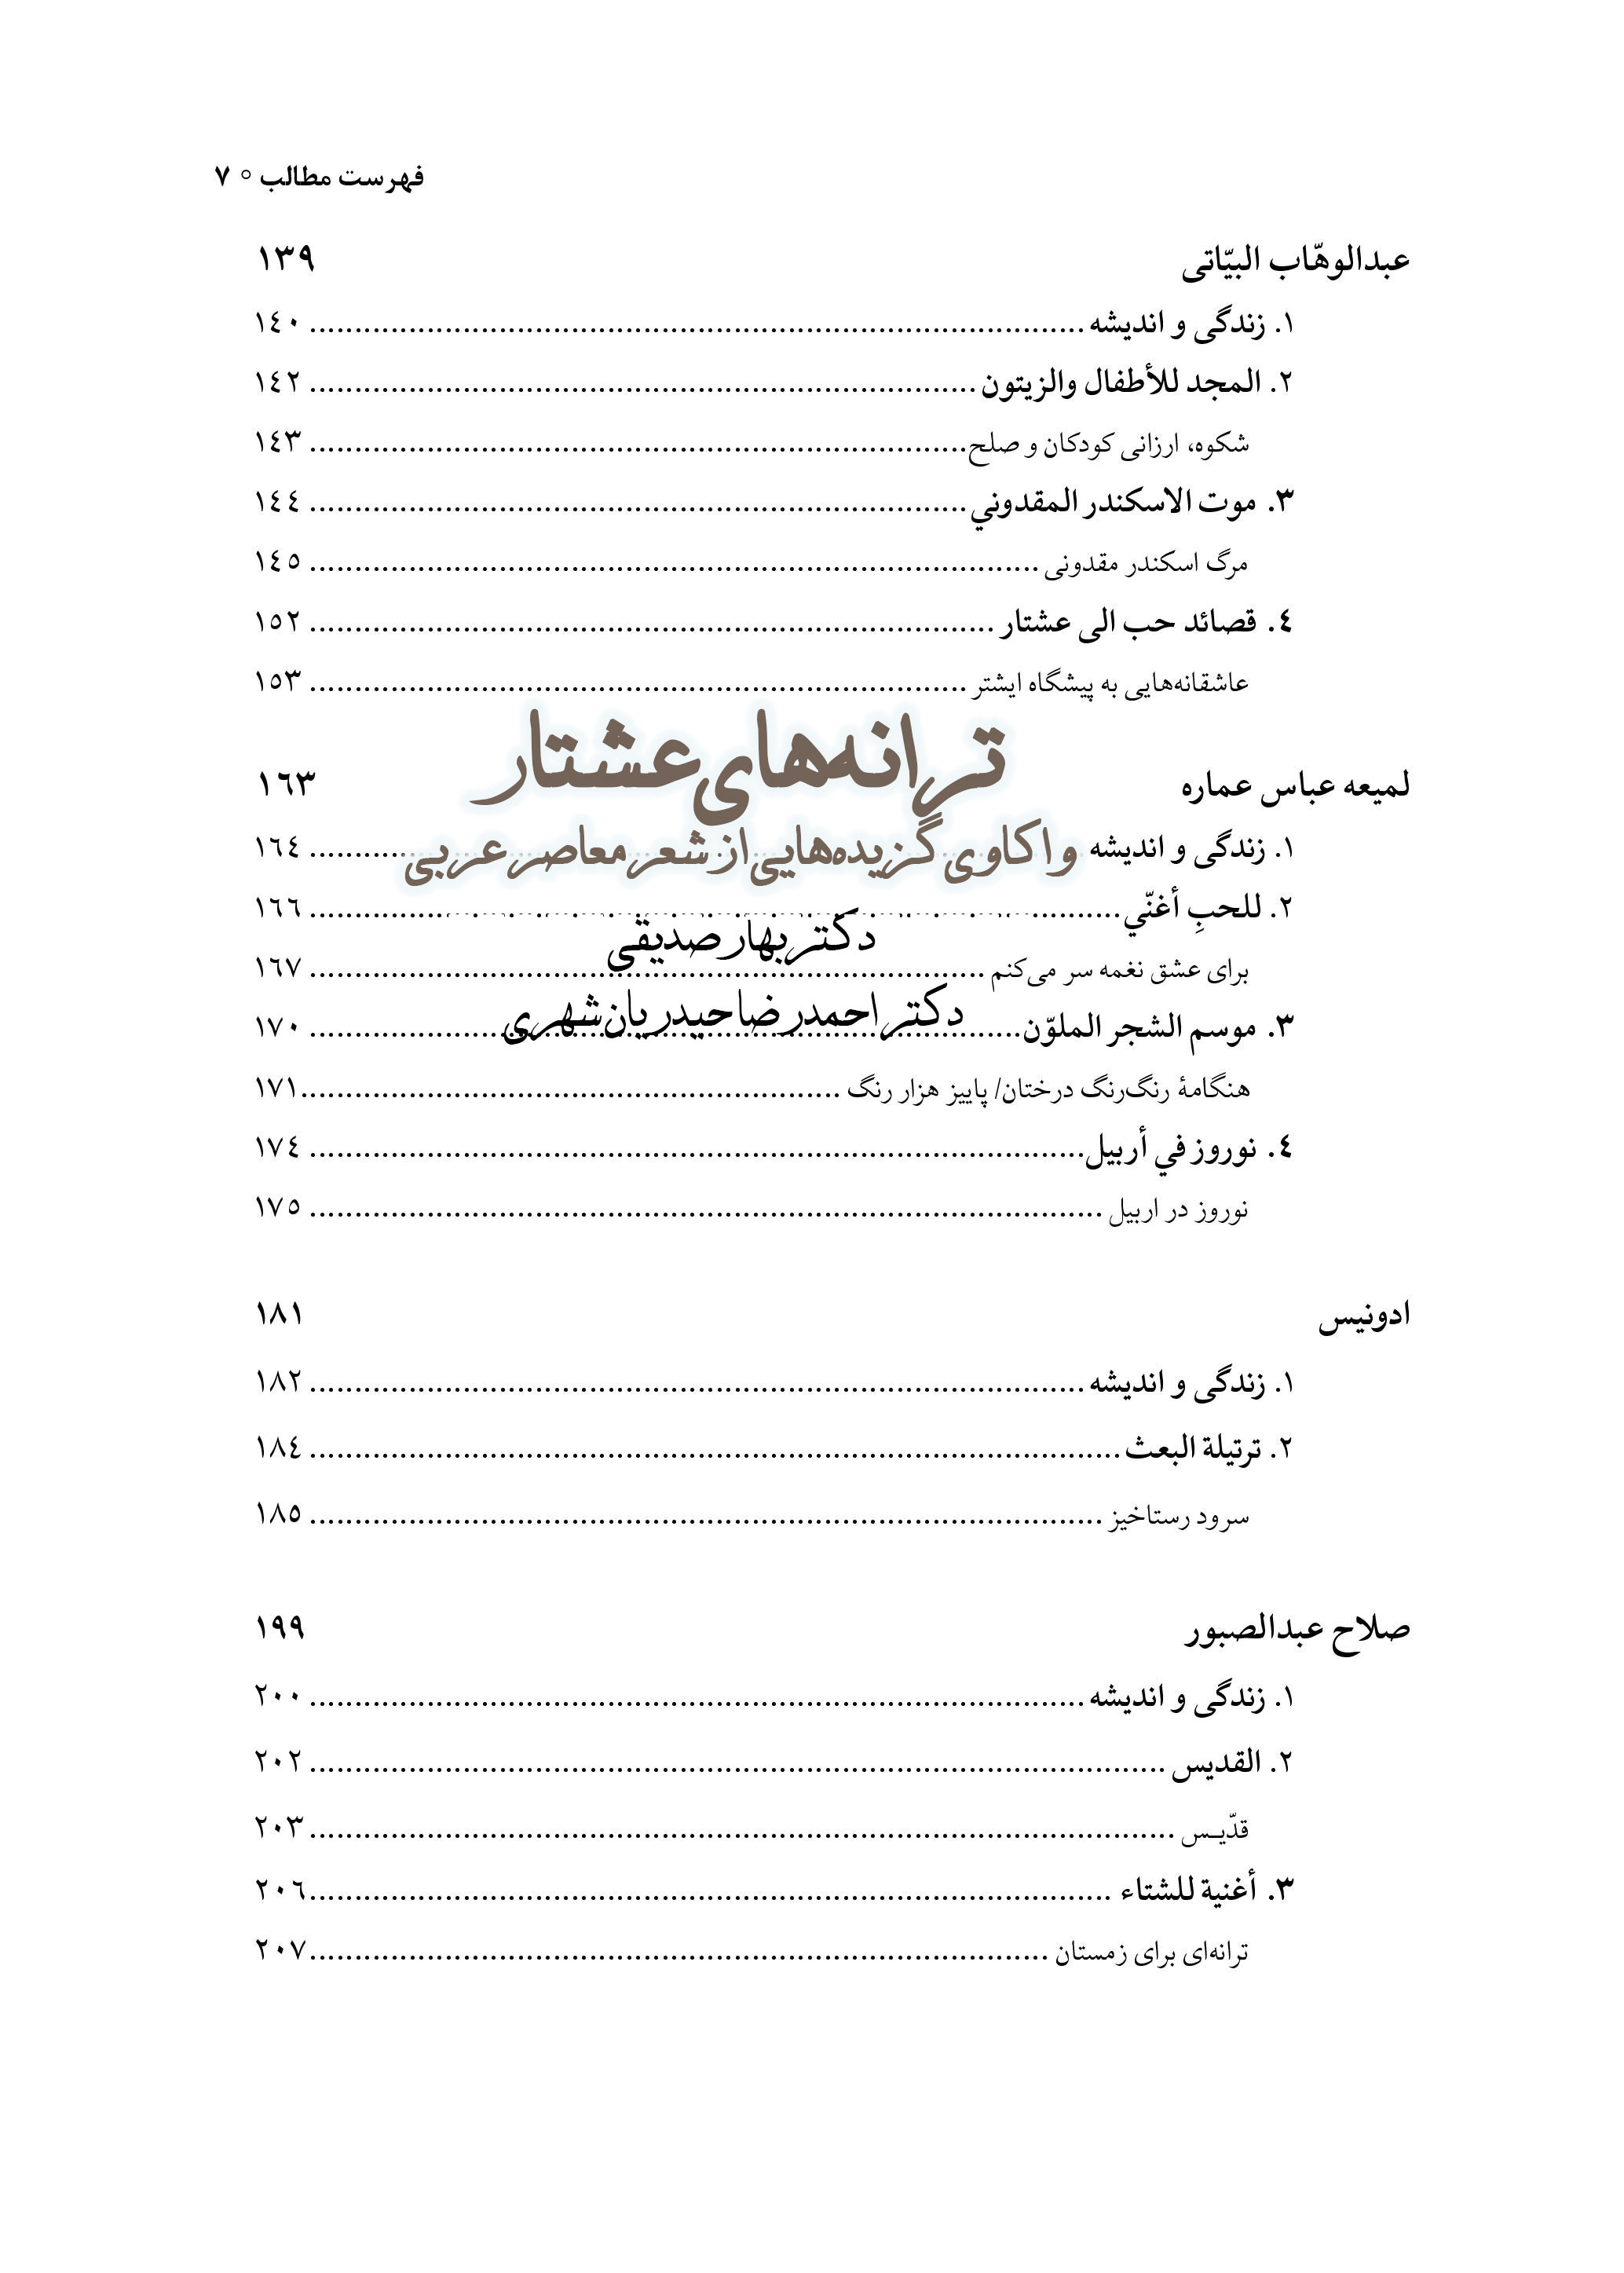 فهرست مطالب ○ ۷
عبدالوهّاب البیّاتی ۱۳۹
۱. زندگی و اندیشه ........ ۱٤۰
۲. المجد للأطفال والزیتون ........ ۱٤۲
شکوه، ارزانی کودکان و صلح ........ ۱٤۳
۳. موت الاسکندر المقدوني ........ ۱٤٤
مرگ اسکندر مقدونی ........ ۱٤٥
٤. قصائد حب الی عشتار ........ ۱٥۲
عاشقانه‌هایی به پیشگاه ایشتر ........ ۱٥۳
ترانه‌های عشتار
لمیعه عباس عماره ۱٦۳
واکاوی گزیده‌هایی از شعر معاصر عربی
۱. زندگی و اندیشه ........ ۱٦٤
۲. للحبِ أغنّي ........ ۱٦٦
دکتر بهار صدیقی
برای عشق نغمه سر می‌کنم ........ ۱٦۷
دکتر احمدرضا حیدریان‌شهری
۳. موسم الشجر الملوّن ........ ۱۷۰
هنگامۀ رنگ‌رنگ درختان/ پاییز هزار رنگ ........ ۱۷۱
٤. نوروز في أربیل ........ ۱۷٤
نوروز در اربیل ........ ۱۷٥
ادونیس ۱۸۱
۱. زندگی و اندیشه ........ ۱۸۲
۲. ترتیلة البعث ........ ۱۸٤
سرود رستاخیز ........ ۱۸٥
صلاح عبدالصبور ۱۹۹
۱. زندگی و اندیشه ........ ۲۰۰
۲. القدیس ........ ۲۰۲
قدّیـس ........ ۲۰۳
۳. أغنیة للشتاء ........ ۲۰٦
ترانه‌ای برای زمستان ........ ۲۰۷